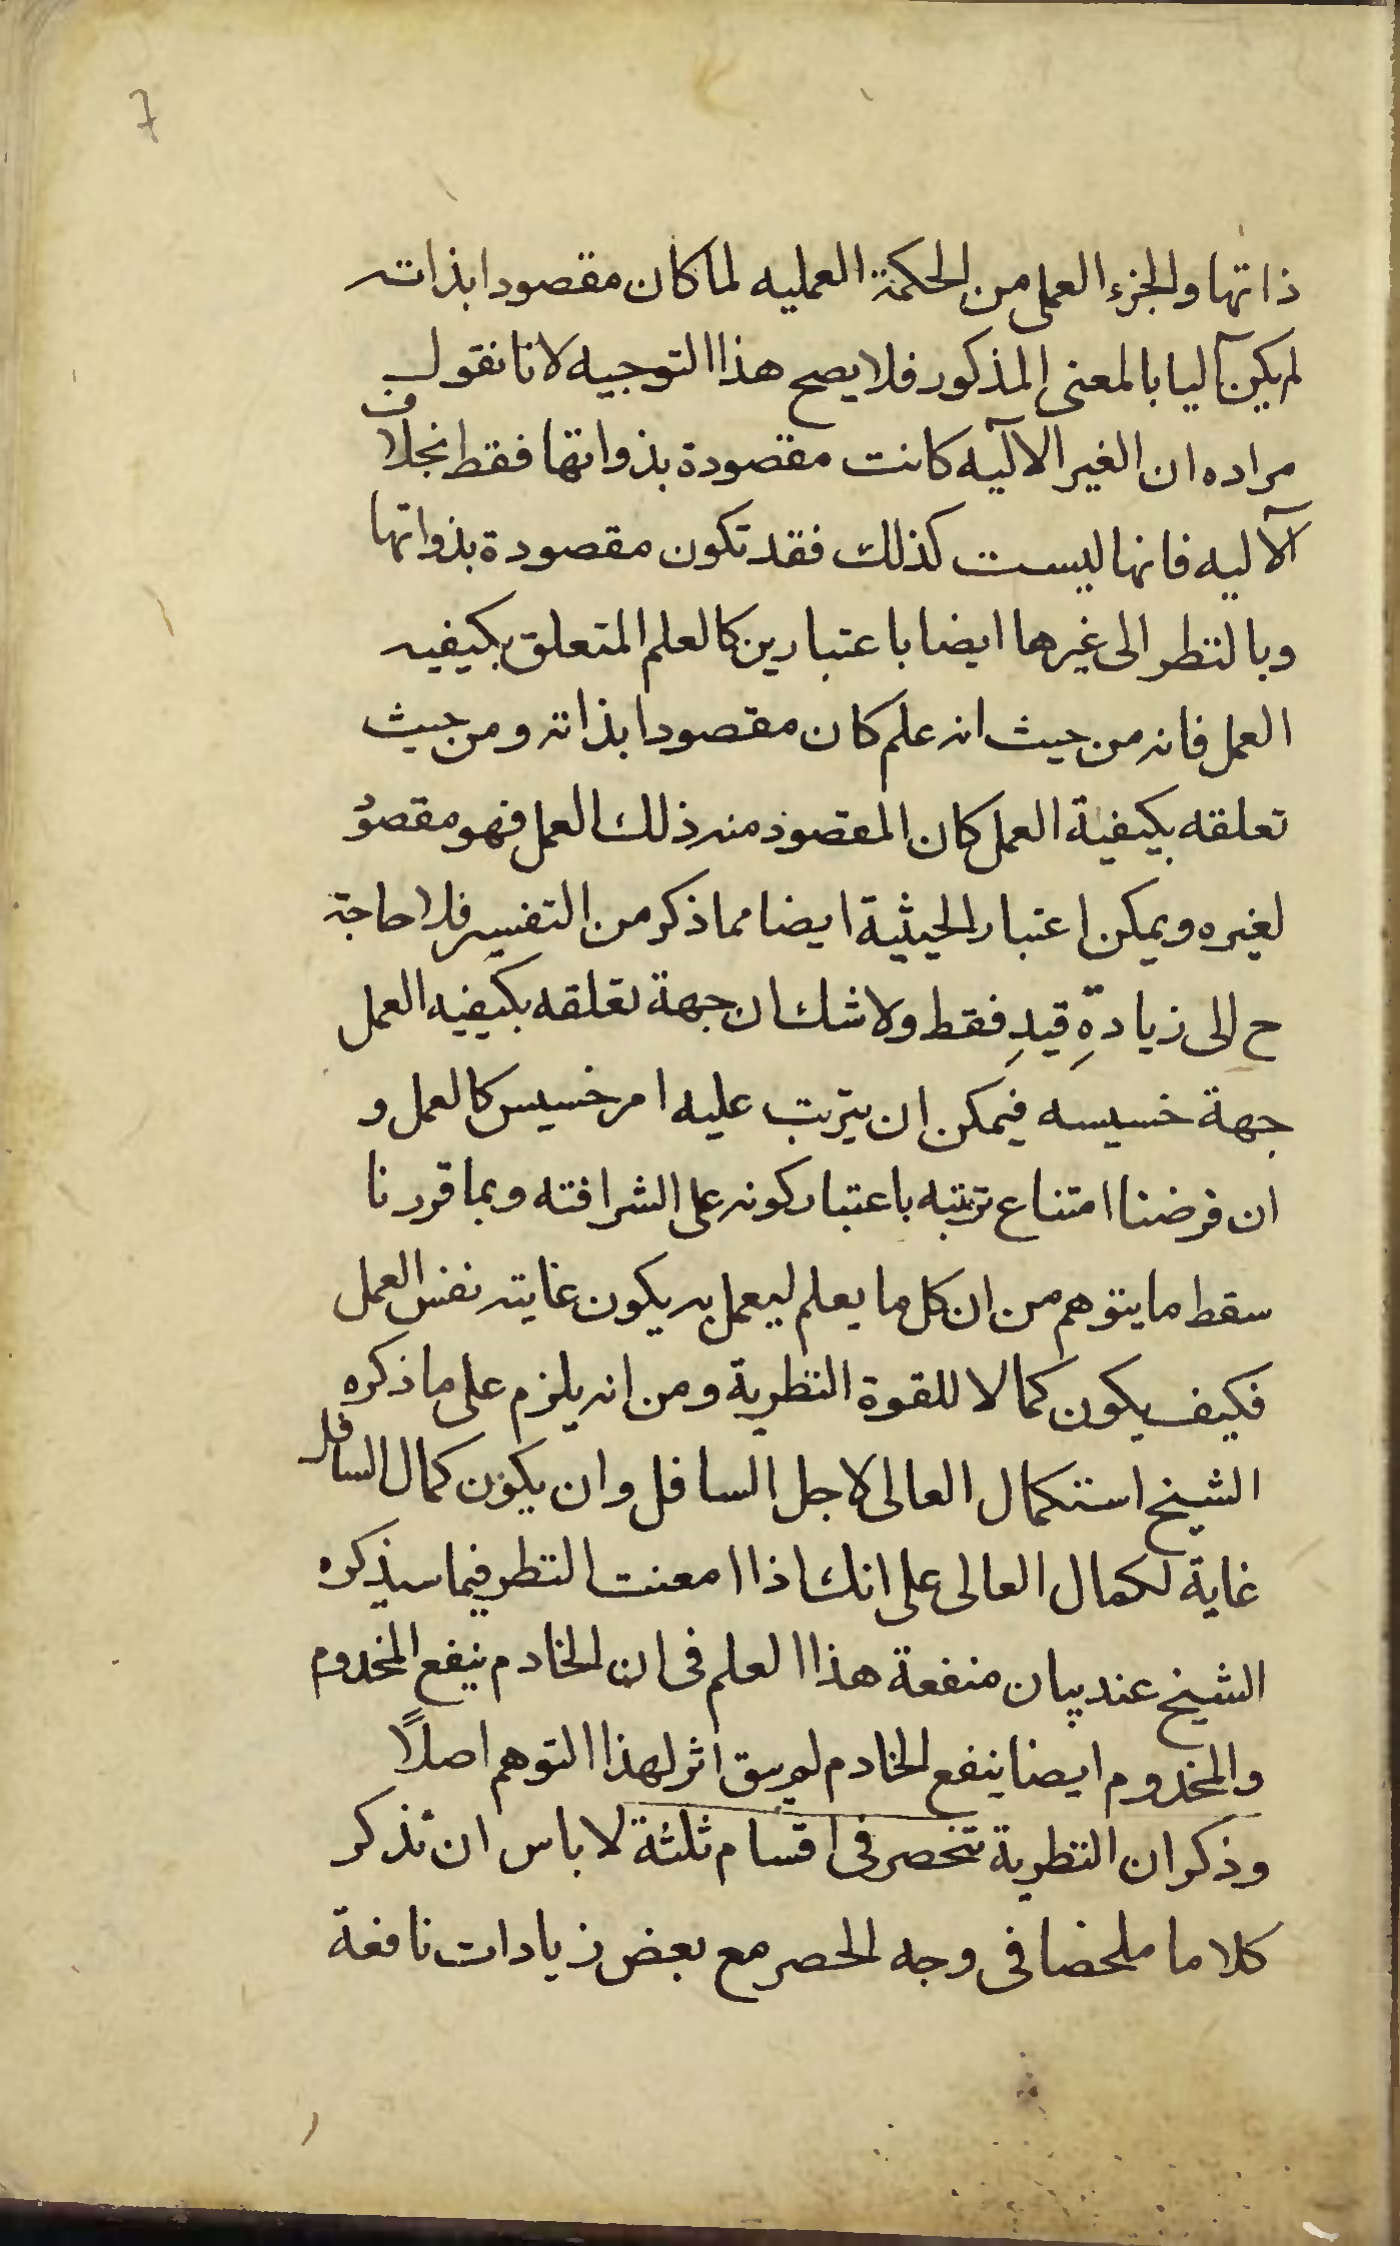 7
ذاتها والجزء العملى من الحكمة العمليه لما كان مقصودا بذاته
لم يكن آليا بالمعنى المذكور فلا يصح هذا التوجيه لانا نقول
مراده ان الغير الآليه كانت مقصودة بذواتها فقط بخلاف
الآليه فانها ليست كذلك فقد تكون مقصودة بذواتها
وبالنظر الى غيرها ايضا باعتبارين كالعلم المتعلق بكيفيه
العمل فانه من حيث انه علم كان مقصودا بذاته ومن حيث
تعلقه بكيفية العمل كان المقصود منه ذلك العمل فهو مقصود
لغيره ويمكن اعتبار الحيثية ايضا مما ذكر من التفسير فلا حاجة
ح الى زيادةِ قيدِ فقط ولا شك ان جهة تعلقه بكيفيه العمل
جهة خسيسه فيمكن ان يترتب عليه امر خسيس كالعمل و
ان فرضنا امتناع ترتبه باعتبار كونه على الشرافته وبما قررنا
سقط ما يتوهم من ان كل ما يعلم ليعمل به يكون غايته نفس العمل
فكيف يكون كمالا للقوة النظرية ومن انه يلزم على ما ذكره
الشيخ استكمال العالى لاجل السافل وان يكون كمال السافل
غاية لكمال العالى على انك اذا امعنت النظر فيما سيذكره
الشيخ عند بيان منفعة هذا العلم فى ان الخادم ينفع المخدوم
والمخدوم ايضا ينفع الخادم لم يبق اثر لهذا التوهم اصلاً
وذكر ان النظرية تنحصر فى اقسام ثلثة لا باس ان نذكر
كلاما ملخصا فى وجه الحصر مع بعض زيادات نافعة